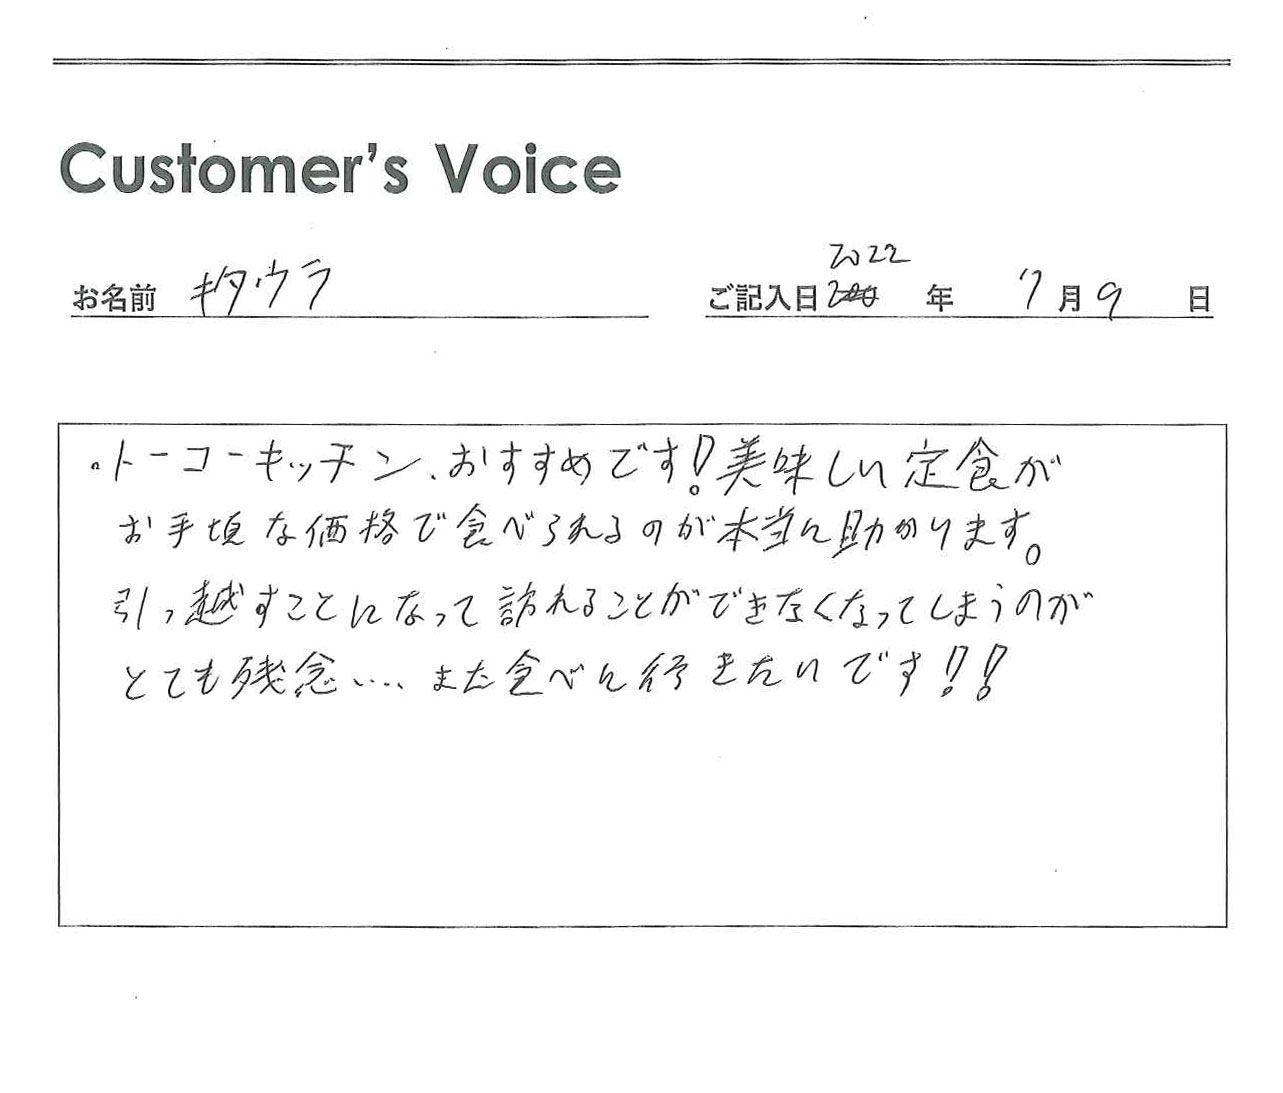 Customer's Voice
お名前 キタウラ
2022
ご記入日 年 7月9日
。トーコーキッチン、おすすめです!美味しい定食が
お手頃な価格で食べられるのが本当に助かります。
引っ越すことになって訪れることができなくなってしまうのが
とても残念…. また食べに行きたいです!!